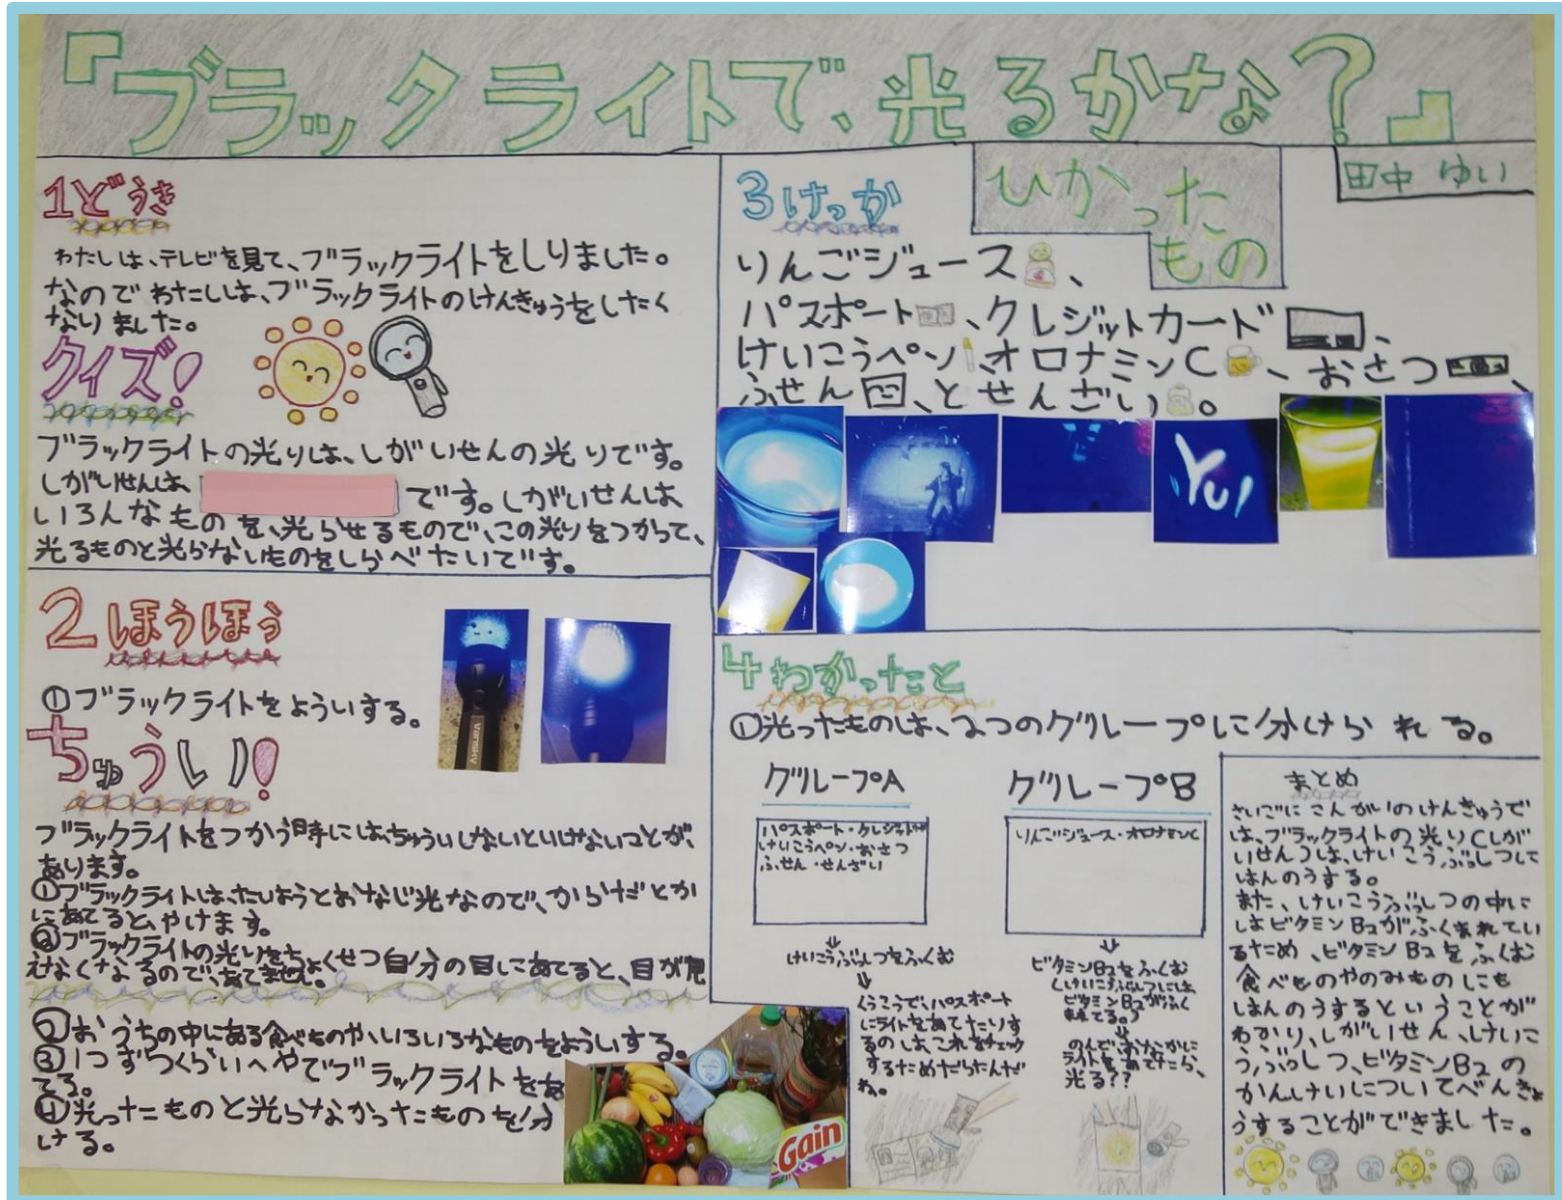 『ブラックライトで、光るかな?』
田中 ゆい
1どうき
わたしは、テレビを見て、ブラックライトをしりました。
なので わたしは、ブラックライトのけんきゅうをしたく
なりました。
クイズ!
ブラックライトの光りは、しがいせんの光りです。
しがいせんは
です。しがいせんは
いろんなものを、光らせるもので、この光りをつかって、
光るものと光らないものをしらべたいです。
2ほうほう
①ブラックライトをよういする。
ちゅうい!
ブラックライトをつかう時には、ちゅういしないといけないことが、
あります。
①ブラックライトは、たいようとおなじ光なので、からだとか
にあてると、やけます。
②ブラックライトの光りをちょくせつ自分の目にあてると、目が見
えなくなるので、あてません。
②おうちの中にある食べものや、いろいろなものをよういする。
③1つずつくらいへやでブラックライトをあ
てる。
④光ったものと光らなかったものを分
ける。
Gain
3けっか
ひかった
もの
りんごジュース、
パスポート、クレジットカード、
けいこうペン、オロナミンC、おさつ、
ふせん、とせんざい。
Yui
4わかったこと
①光ったものは、2つのグループに分けられる。
グループA
パスポート・クレジット
けいこうペン・おさつ
ふせん・せんざい
けいこうぶっしつをふくむ
くうこうで、パスポート
にライトをあてたりす
るのは、これをチェック
するためだったんだ
ね。
グループB
りんごジュース・オロナミンC
ビタミンB2をふくむ
(けいこうぶっしつには、
ビタミンB2がふく
まれてる。)
のんで、おなかに
ライトをあてたら、
光る??
まとめ
さいごにこんかいのけんきゅうで
は、ブラックライトの光り(しが
いせん)は、けいこうぶっしつして
はんのうする。
また、けいこうぶっしつの中に
はビタミンB2がふくまれてい
るため、ビタミンB2をふくむ
食べものやのみものにも
はんのうするということが
わかり、しがいせん、けいこ
うぶっしつ、ビタミンB2の
かんけいについてべんきょ
うすることができました。